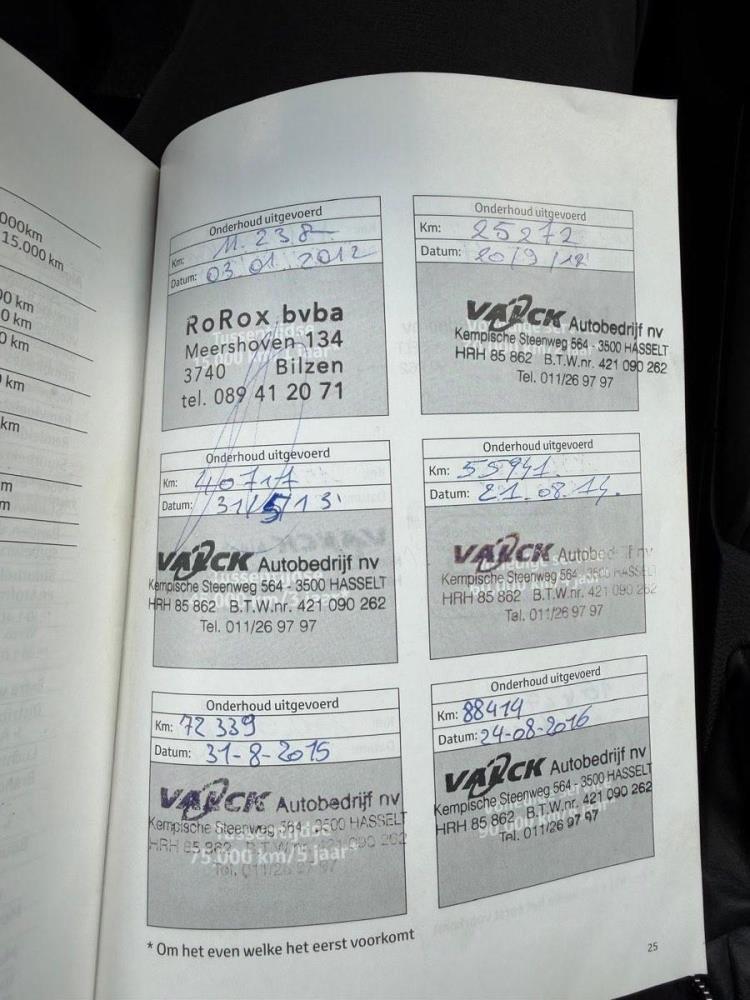 000km
15.000 km
00 km
0 km
0 km
km
km
m
m
Onderhoud uitgevoerd
Km: 11.238
Datum: 03.01.2012
Tussentijdse
15.000 km/1 jaar*
RoRox bvba
Meershoven 134
3740 Bilzen
tel. 089 41 20 71
Onderhoud uitgevoerd
Km: 25272
Datum: 20/9/12
VAИCK Autobedrijf nv
Kempische Steenweg 564 - 3500 HASSELT
HRH 85 862 B.T.W.nr. 421 090 262
Tel. 011/26 97 97
Onderhoud uitgevoerd
Km: 40717
Datum: 31/5/13
Autobedrijf nv
Kempische Steenweg 564 - 3500 HASSELT
HRH 85 862 B.T.W.nr. 421 090 262
Tel. 011/26 97 97
Onderhoud uitgevoerd
Km: 55941.
Datum: 21.08.14.
Autobedrijf nv
Kempische Steenweg 564 - 3500 HASSELT
HRH 85 862 B.T.W.nr. 421 090 262
Tel. 011/26 97 97
Onderhoud uitgevoerd
Km: 72339
Datum: 31-8-2015
Autobedrijf nv
Kempische Steenweg 564 - 3500 HASSELT
HRH 85 862 B.T.W.nr. 421 090 262
Tussentijdse
75.000 km/5 jaar*
Tel. 011/26 97 97
Onderhoud uitgevoerd
Km: 88414
Datum: 24-08-2016
Autobedrijf nv
Kempische Steenweg 564 - 3500 HASSELT
HRH 85 862 B.T.W.nr. 421 090 262
Tel. 011/26 97 97
* Om het even welke het eerst voorkomt
25